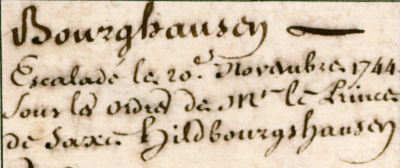 Bourghausen
Escalade le 20.e Novembre 1744.
sous les ordres de Mr. le Prince
de Saxe Hildbourgshausen